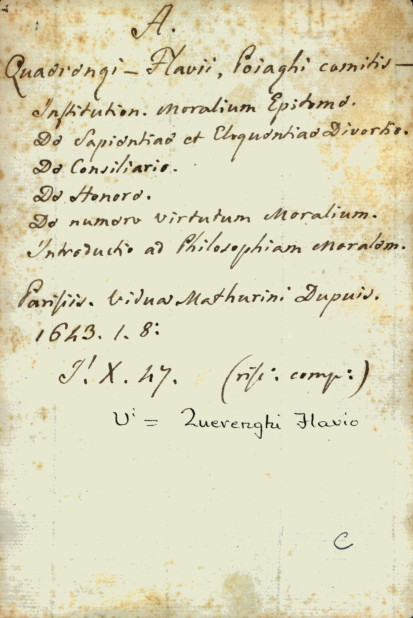 A.
Quaerengi – Flavii, Poiaghi comitis –
Institution. Moralium Epitome.
De Sapientiae et Eloquentiae Divortio.
De Consiliario.
De Honore.
De numero virtutum Moralium.
Introductio ad Philosophiam Moralem.
Parisiis. Viduae Mathurini Dupuis.
1643. 1. 8:
J! X. 47. (risp: comp:)
Vi = Querenghi Flavio
C